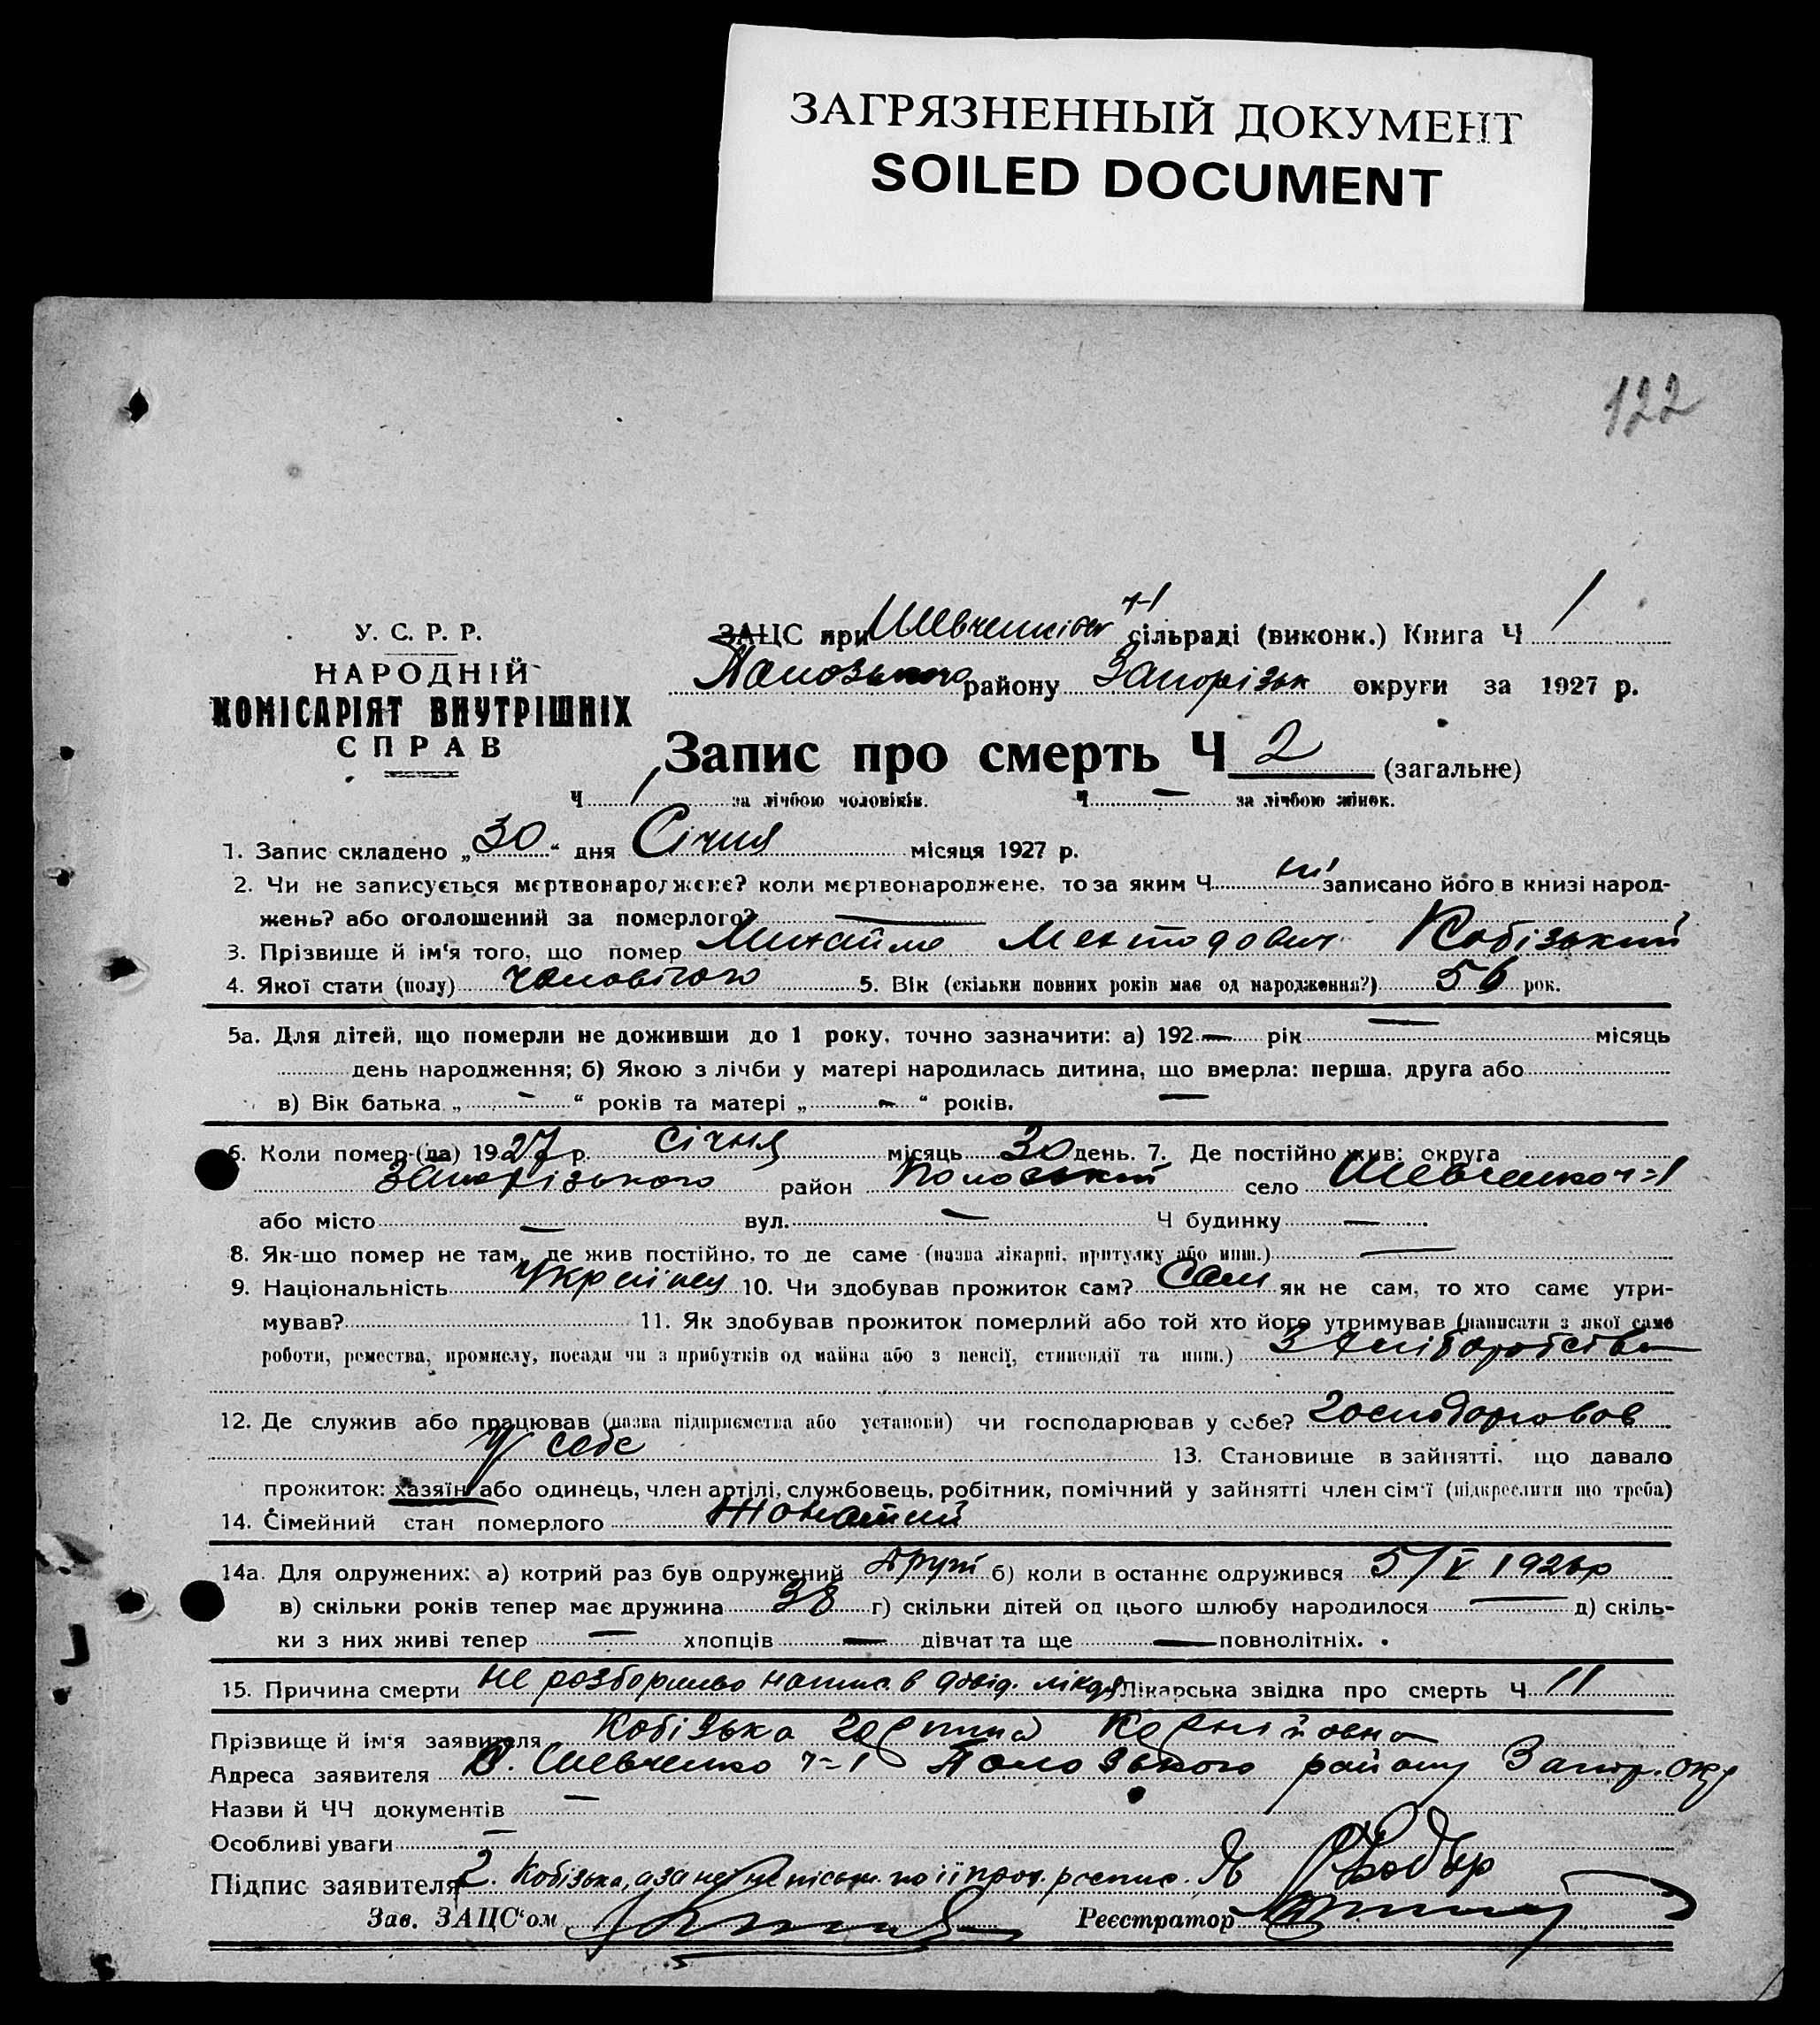 ЗАГРЯЗНЕННЫЙ ДОКУМЕНТ
SOILED DOCUMENT
122
У. С. Р. Р.
НАРОДНІЙ
КОМІСАРІЯТ ВНУТРІШНІХ
СПРАВ
ЗАЦС при Шевченків ч-1 сільраді (виконк.) Книга Ч 1
району Запорізьк округи за 1927 р.
Запис про смерть Ч 2 (загальне)
Ч 1 за лічбою чоловіків. Ч — за лічбою жінок.
1. Запис складено „30“ дня Січня місяця 1927 р.
2. Чи не записується мертвонароджене? коли мертвонароджене, то за яким Ч ні записано його в книзі народ-
жень? або оголошений за померлого? —
3. Прізвище й ім'я того, що помер Михайло Мехтодович Кобізький
4. Якої стати (полу) чоловічого 5. Вік (скільки повних років має од народження?) 56 рок.
5а. Для дітей, що померли не доживши до 1 року, точно зазначити: а) 192 — рік — місяць
день народження; б) Якою з лічби у матері народилась дитина, що вмерла: перша, друга або
в) Вік батька „ — “ років та матері „ — “ років. —
6. Коли помер (ла) 1927 р. Січня місяць 30 день. 7. Де постійно жив: округа
Запорізького район Пологський село Шевченко ч-1
або місто — вул. — Ч будинку —
8. Як-що помер не там, де жив постійно, то де саме (назва лікарні, притулку або инш.) —
9. Національність Українец 10. Чи здобував прожиток сам? Сам як не сам, то хто саме утри-
мував? 11. Як здобував прожиток померлий або той хто його утримував (написати з якої саме
роботи, ремества, промислу, посади чи з прибутків од майна або з пенсії, стипендії та инш.) З хліборобства
12. Де служив або працював (назва підприємства або установи) чи господарював у себе? господарював
у себе 13. Становище в зайнятті, що давало
прожиток: хазяїн або одинець, член артілі, службовець, робітник, помічний у зайнятті член сім'ї (підкреслити що треба)
14. Сімейний стан померлого Жонатий
14а. Для одружених: а) котрий раз був одружений другий б) коли в останнє одружився 5/V 1926р
в) скільки років тепер має дружина 38 г) скільки дітей од цього шлюбу народилося — д) скіль-
ки з них живі тепер — хлопців — дівчат та ще — повнолітніх.
15. Причина смерти не розборливо напис. в довід. лікаря Лікарська звідка про смерть Ч 11
Прізвище й ім'я заявителя Кобізька Горпина Корніївна
Адреса заявителя С. Шевченко ч-1 Пологського району Запор. окр
Назви й ЧЧ документів —
Особливі уваги —
Підпис заявителя Г. Кобізька, а за неї неписьм. по її прох. розпис.
Зав. ЗАЦС'ом
Реєстратор